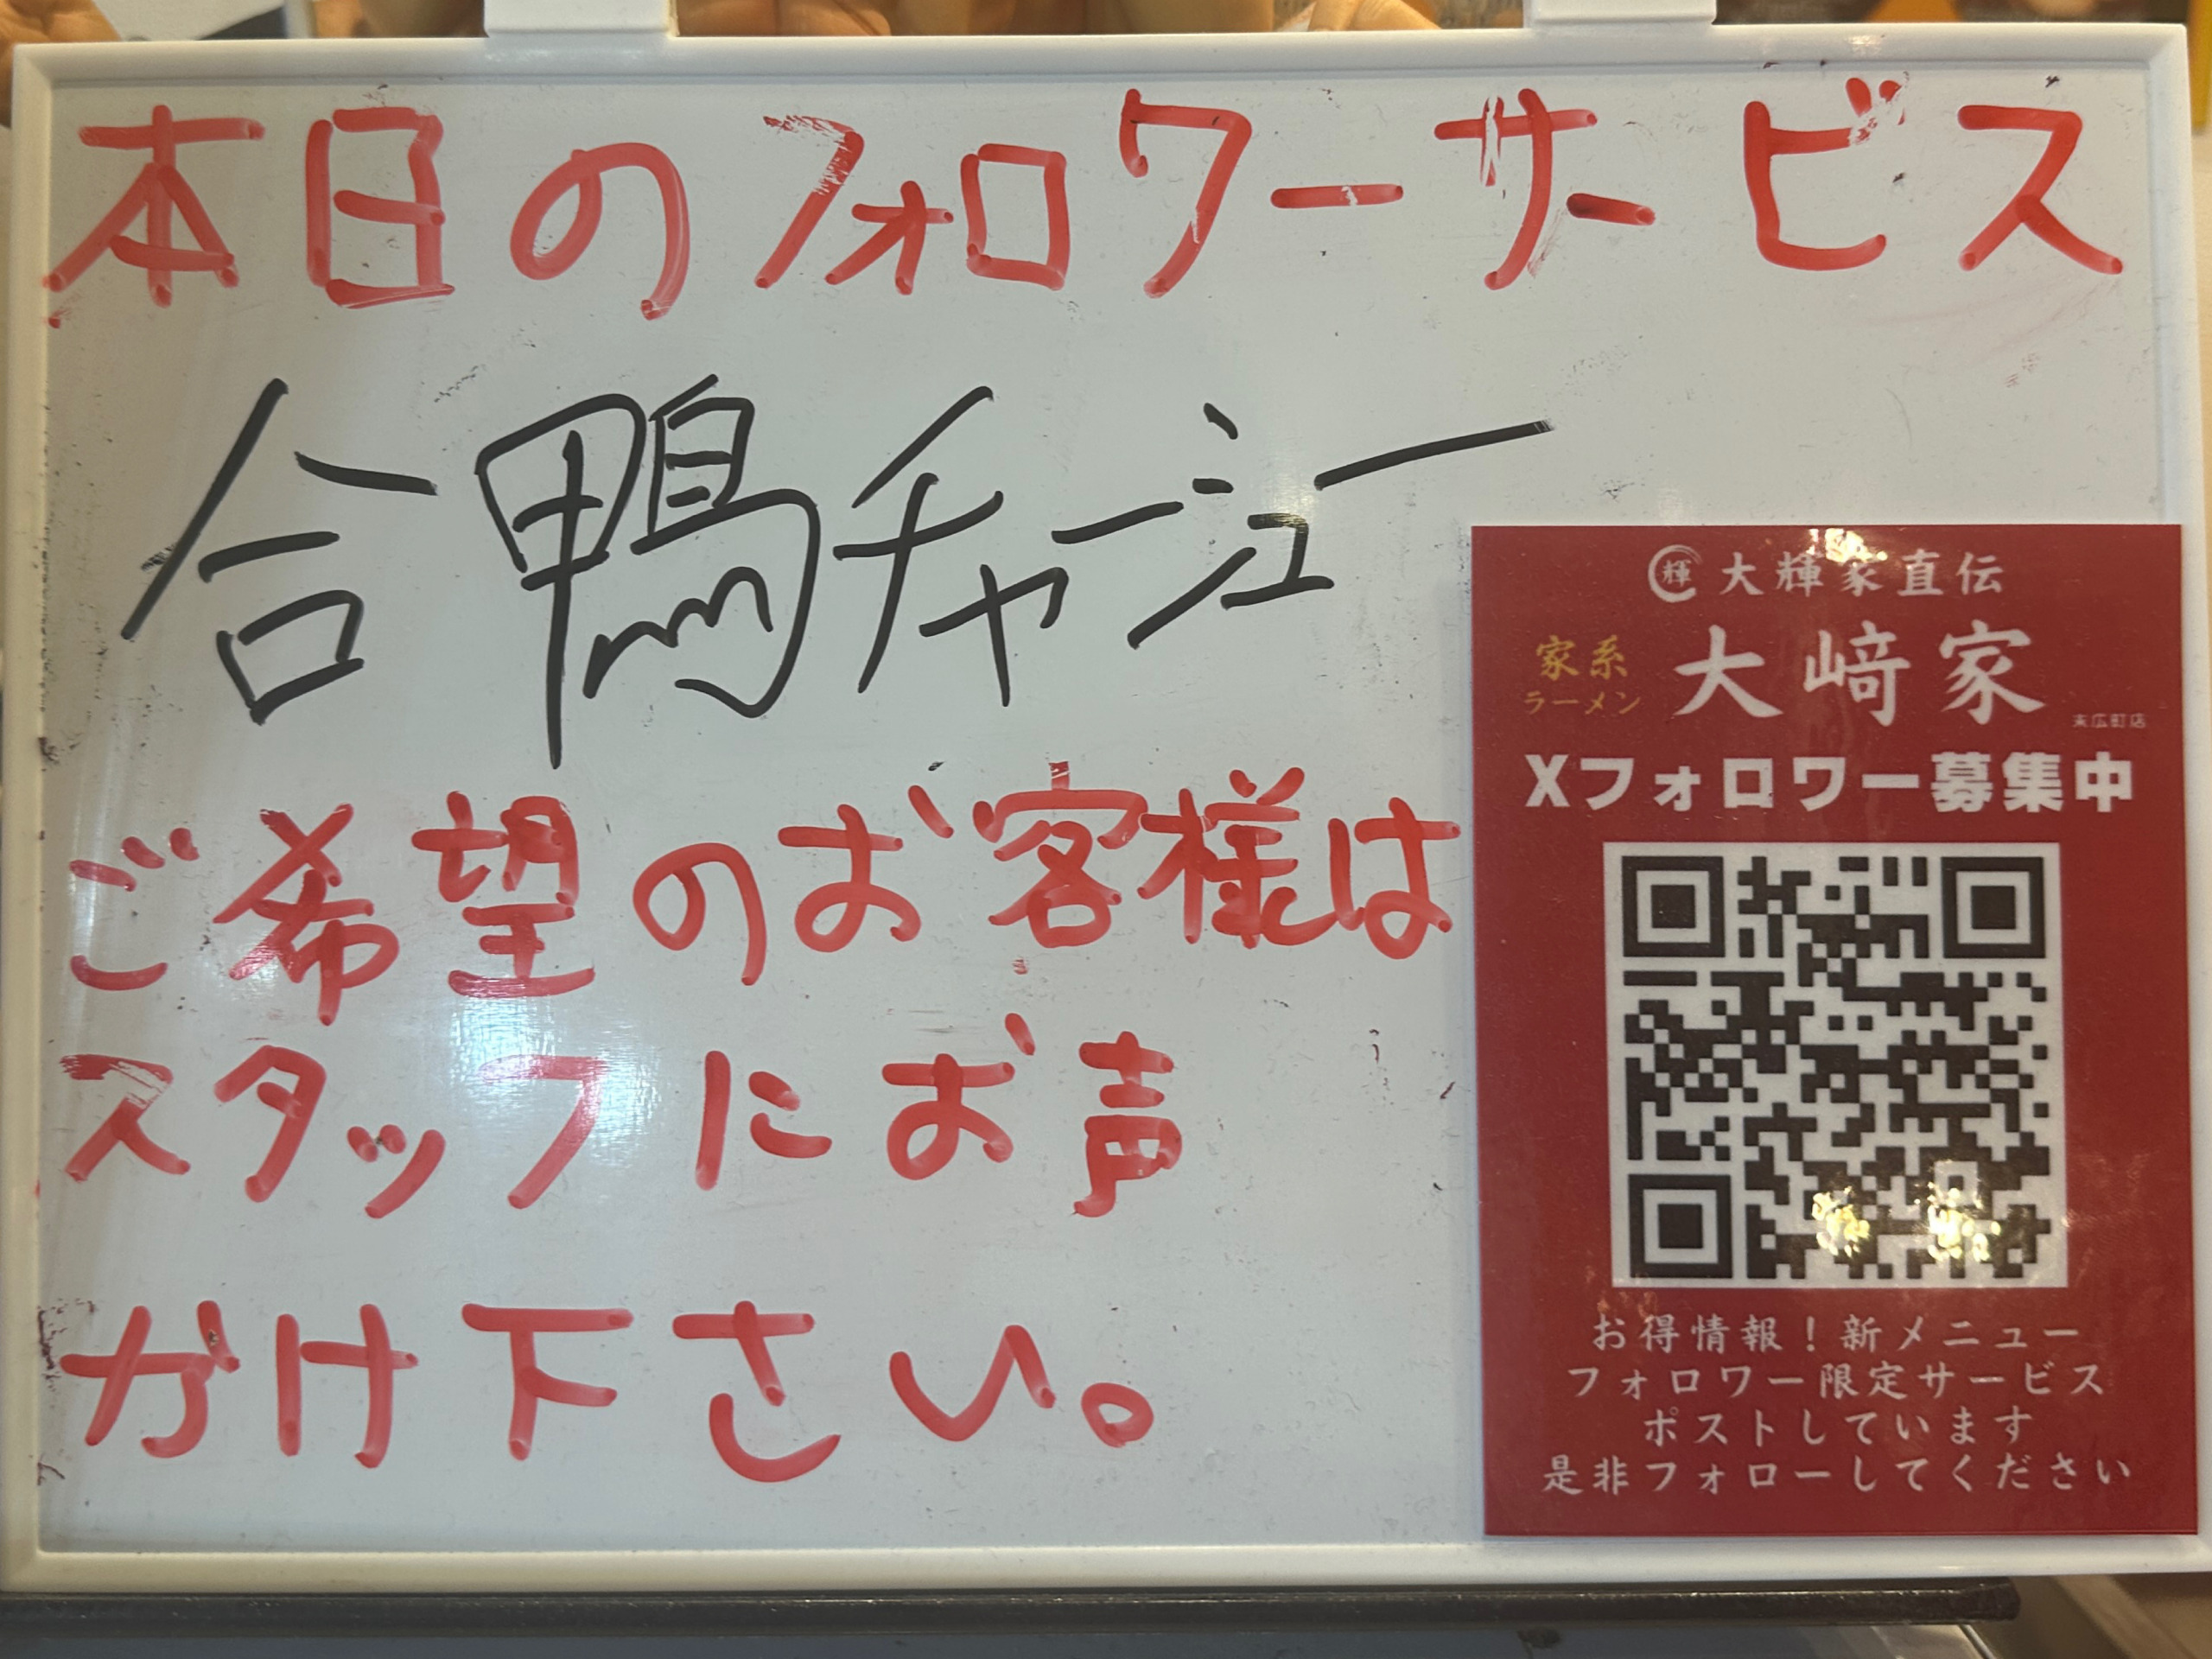 本日のフォロワーサービス
合鴨チャーシュー
ご希望のお客様は
スタッフにお声
かけ下さい。
輝 大輝家直伝
家系
ラーメン
大﨑家
末広町店
Xフォロワー募集中
お得情報！新メニュー
フォロワー限定サービス
ポストしています
是非フォローしてください